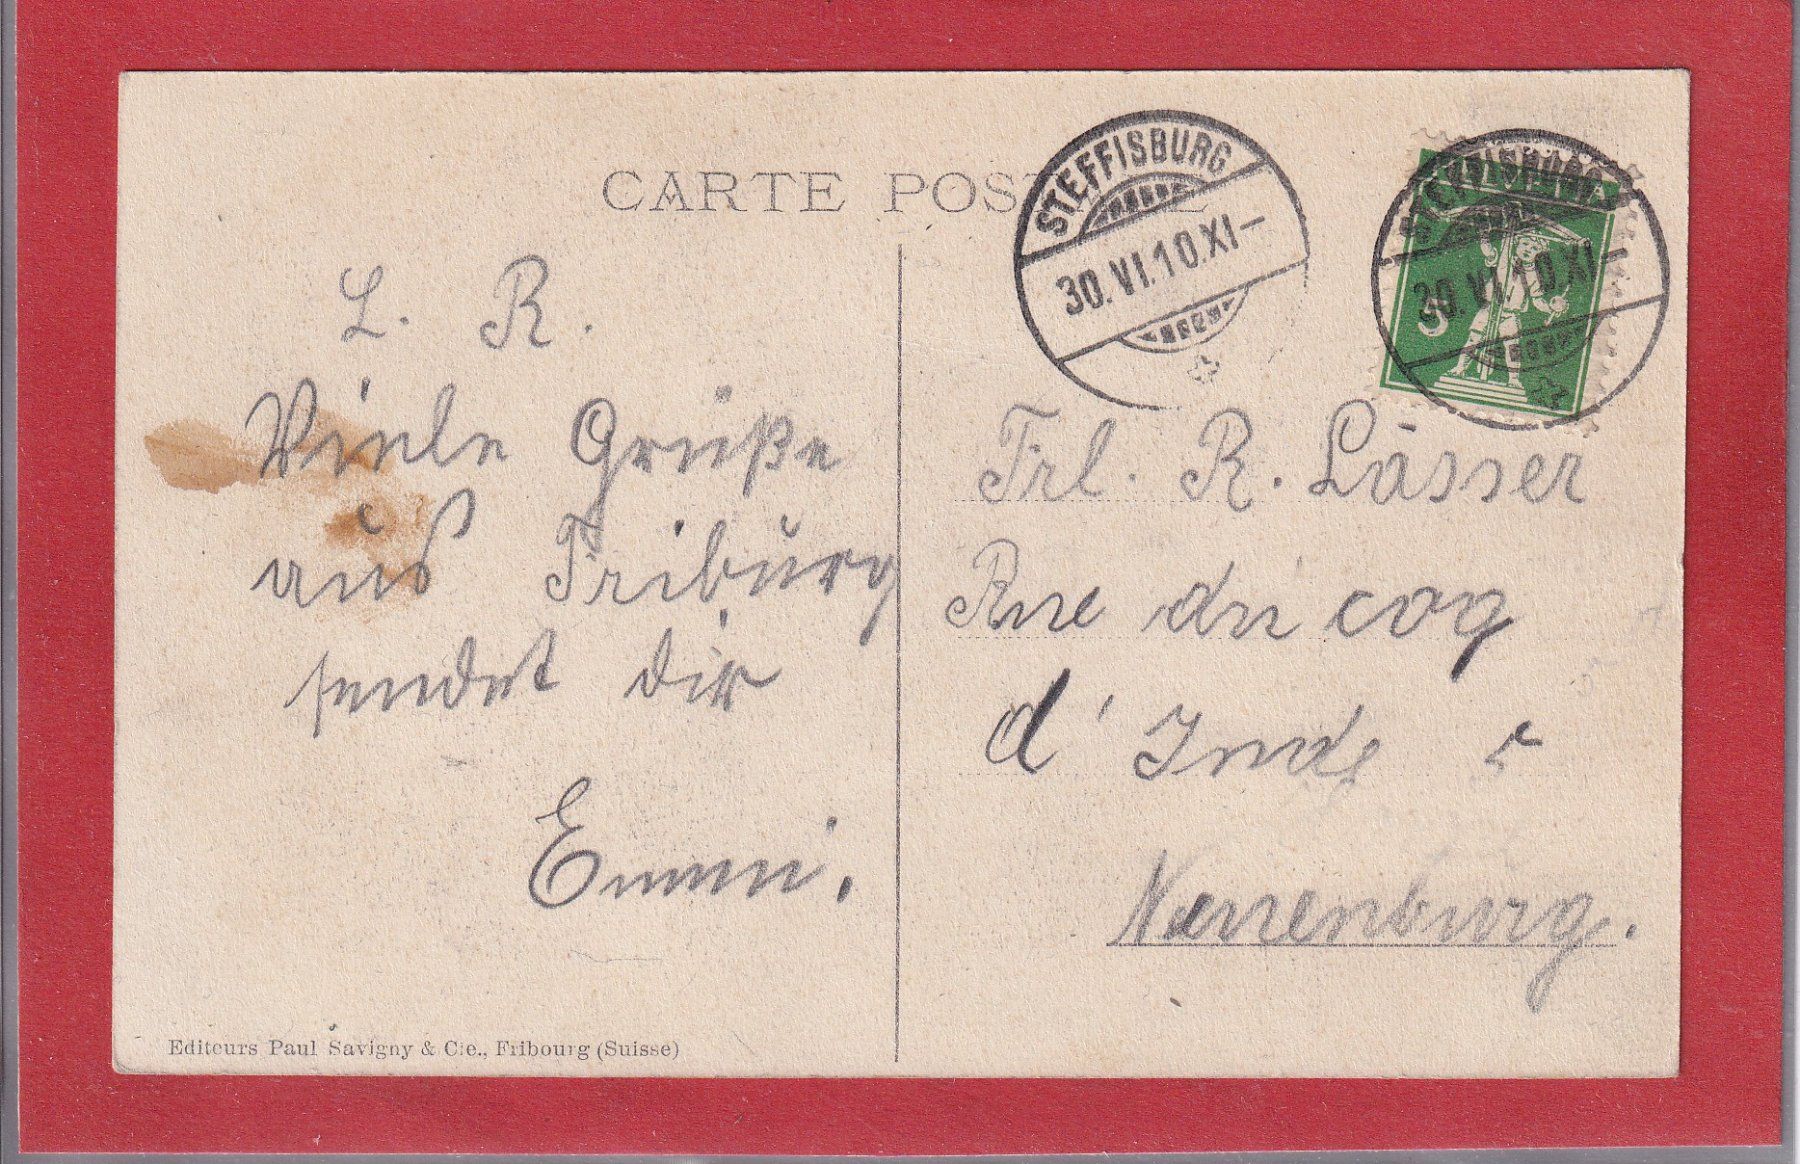 CARTE POSTALE
STEFFISBURG
30.VI.10.XI–
STEFFISBURG
30.VI.10.XI–
5
L. R.
Viele Grüße
aus Friburg
sendet dir
Emmi.
Frl. R. Lässer
Rue du coq
d'Inde
Neuenburg.
Editeurs Paul Savigny & Cie., Fribourg (Suisse)